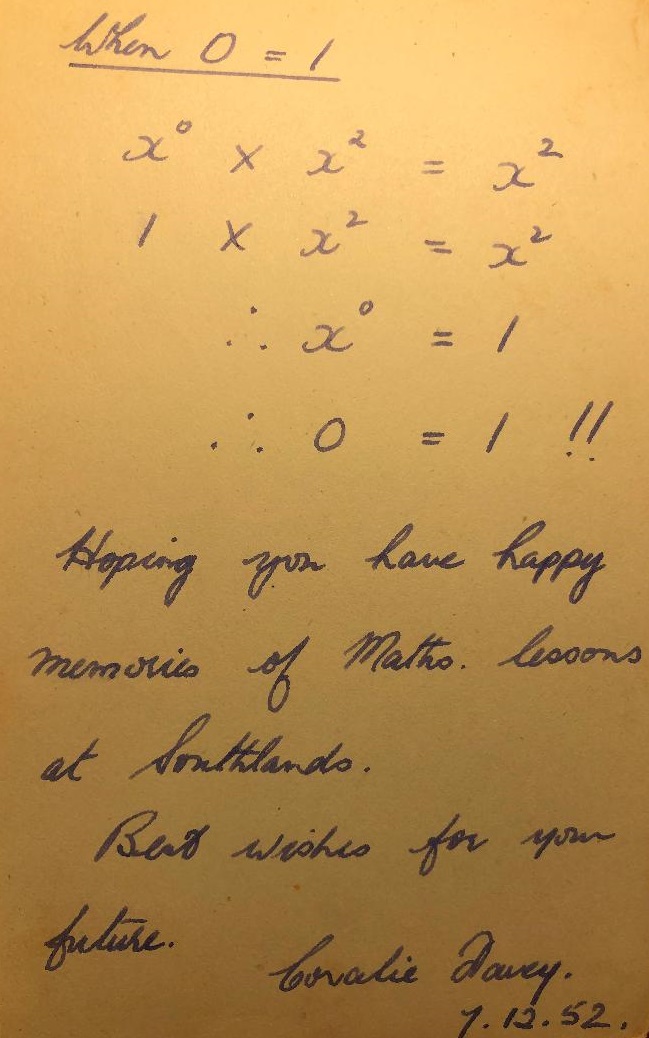 When 0 = 1
x⁰ × x² = x²
1 × x² = x²
∴ x⁰ = 1
∴ 0 = 1 !!
Hoping you have happy
memories of Maths. lessons
at Southlands.
Best wishes for your
future.
Coralie Davey.
7.12.52.